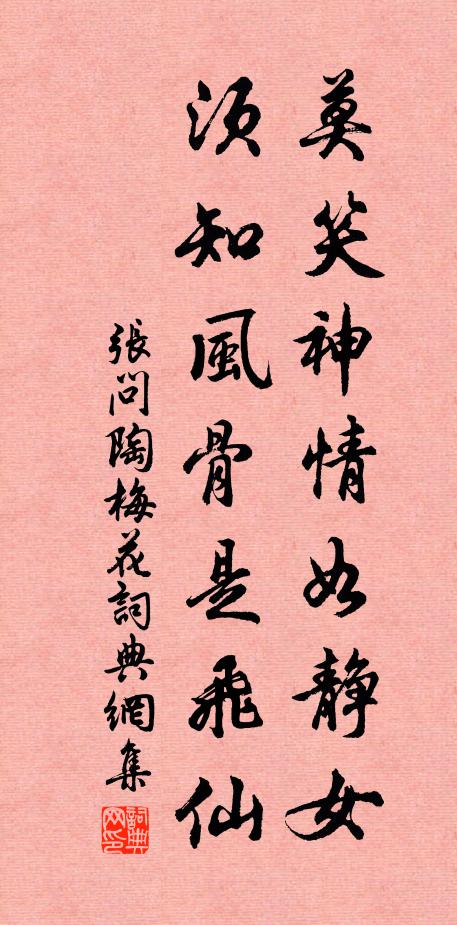 莫笑神情如静女
须知風骨是飛仙
張問陶梅花詞典網集
詞典网印